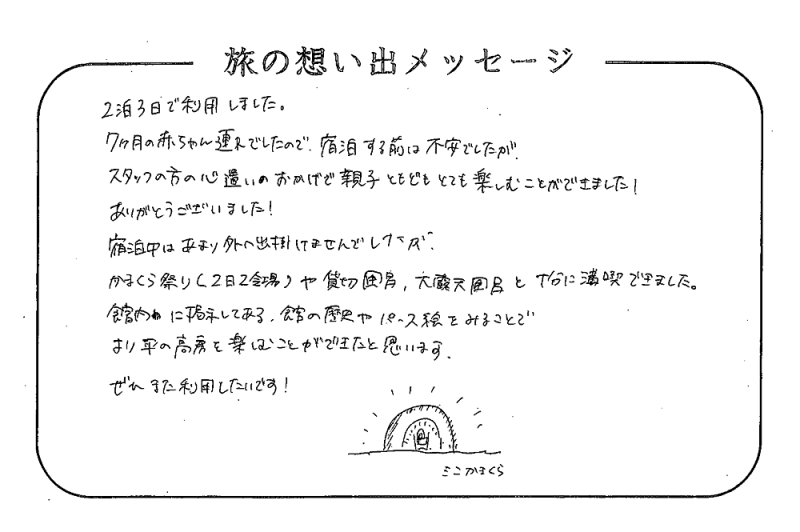 旅の想い出メッセージ
2泊3日で利用しました。
7ヶ月の赤ちゃん連れでしたので、宿泊する前は不安でしたが、
スタッフの方の心遣いのおかげで親子ともどもとても楽しむことができました!
ありがとうございました!
宿泊中はあまり外へ出掛けませんでしたが、
かまくら祭り(2日2会場)や貸切風呂,大露天風呂と十分に満喫できました。
館内に掲示してある、館の歴史やパース絵をみることで
より平の高房を楽しむことができたと思います。
ぜひまた利用したいです!
ミニかまくら